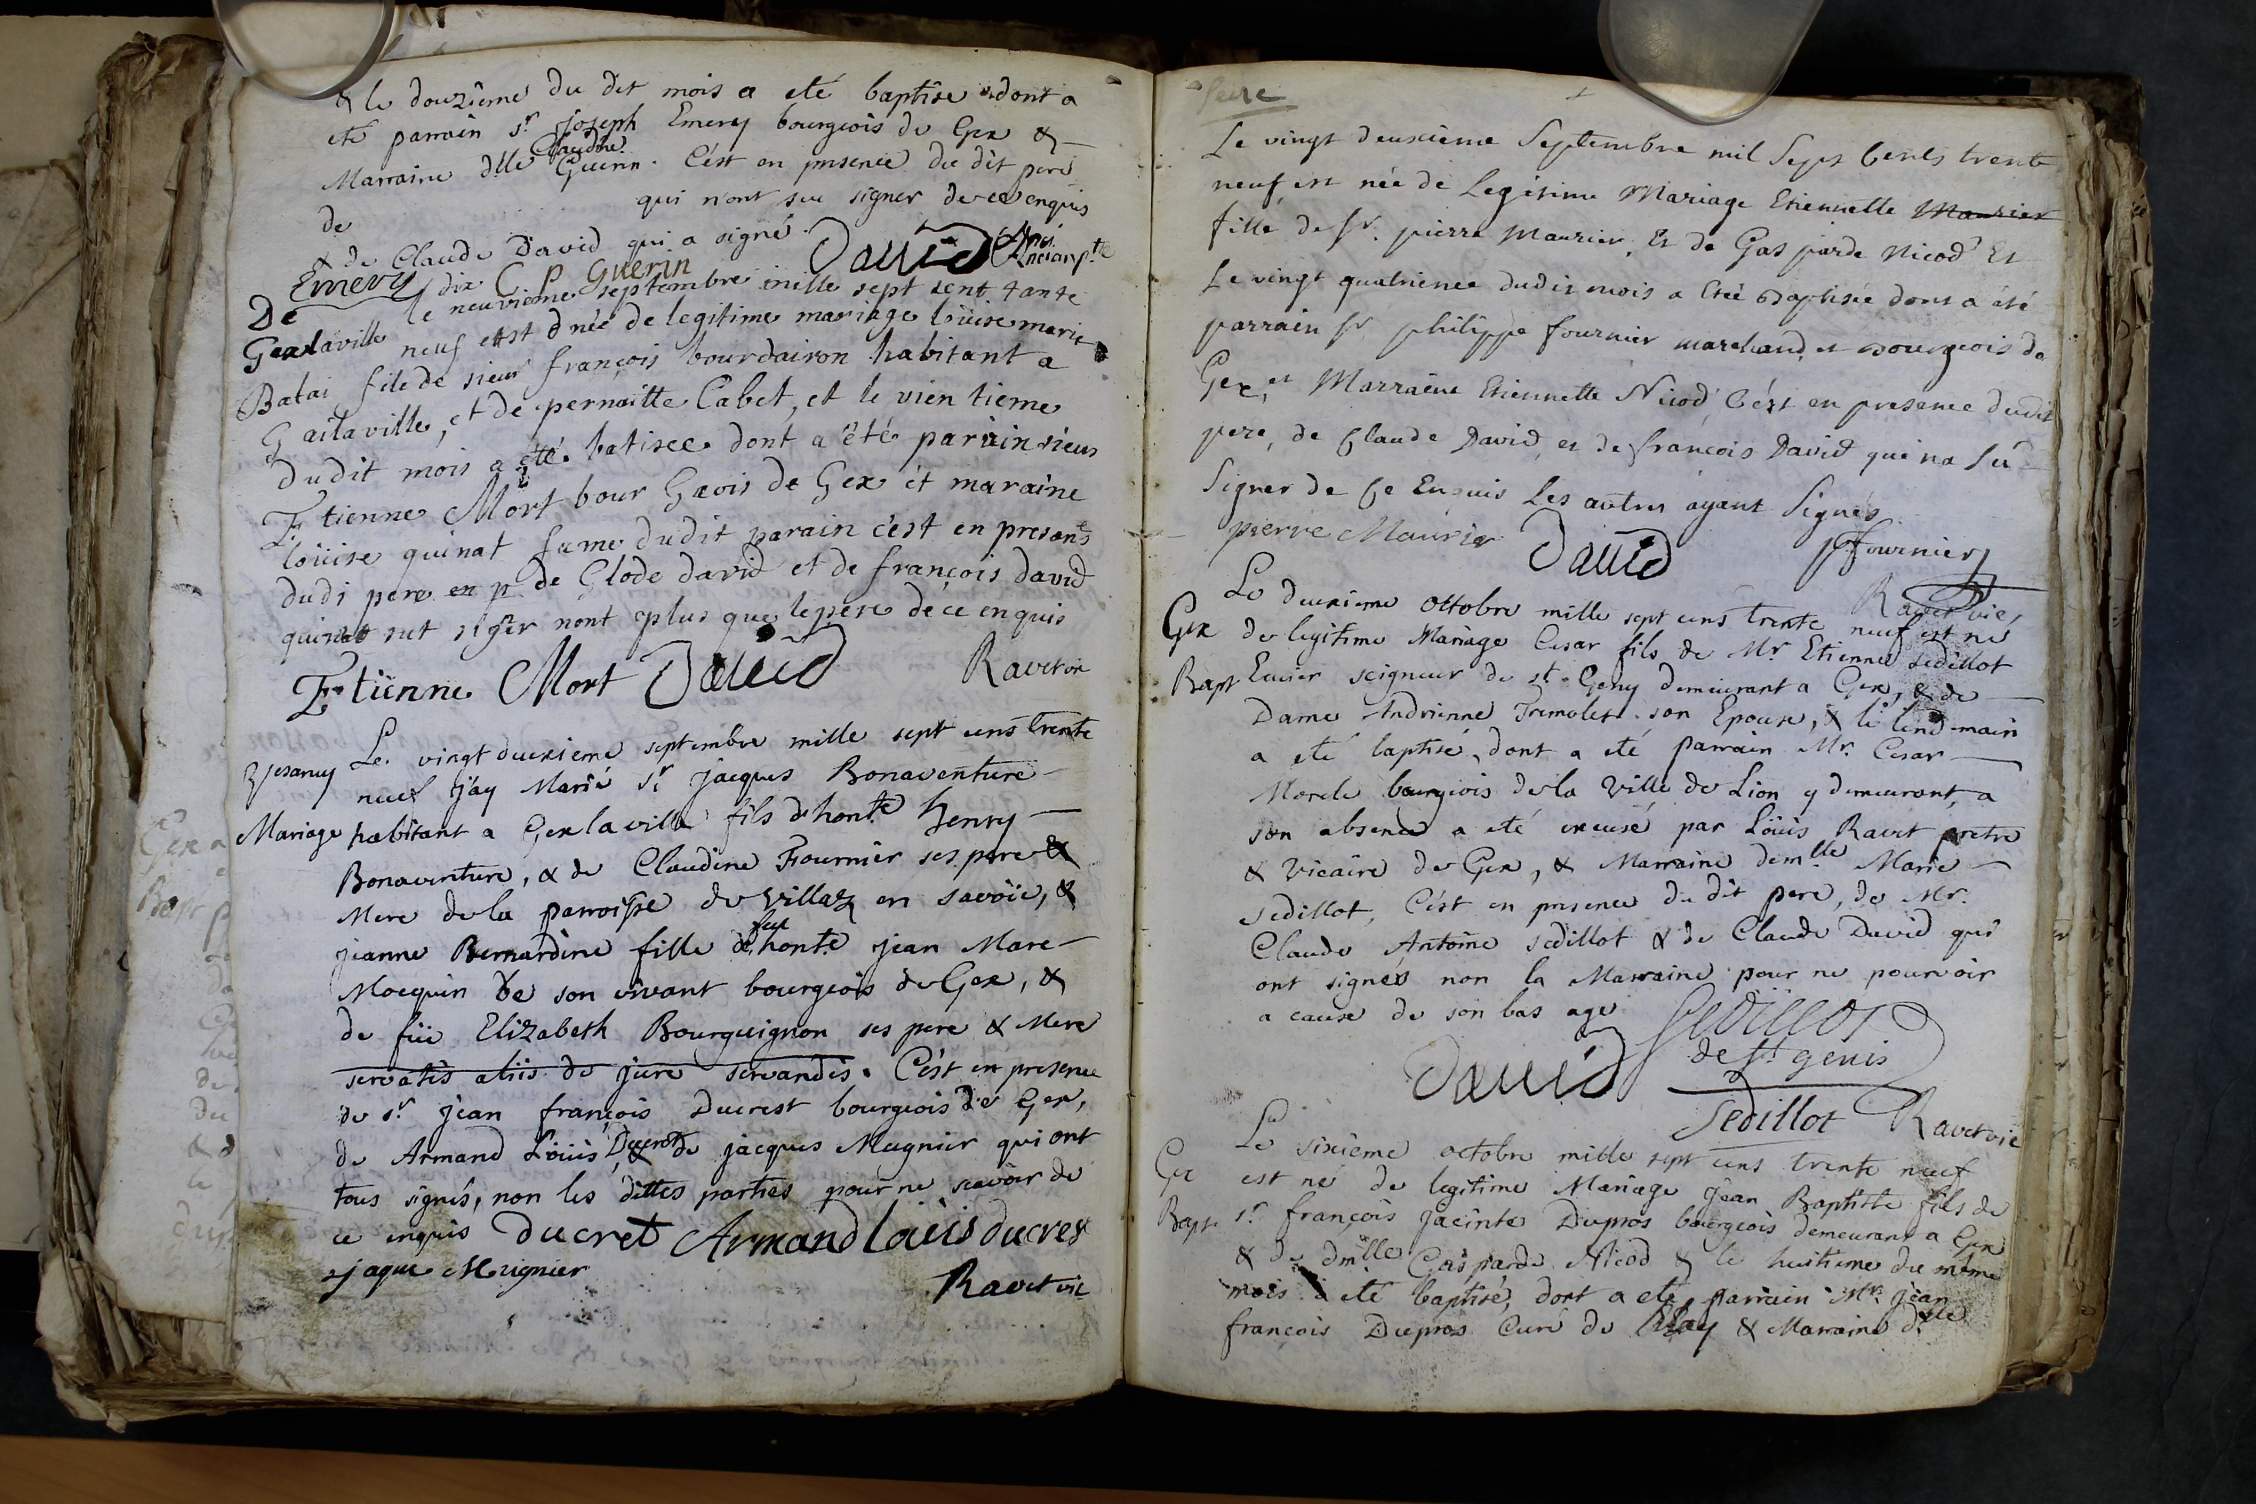 & le douzième du dit mois a eté baptise dont a
eté parrain sr joseph Emery bourgeois de Gex &
Claudine
Marraine dlle Guerin. C'ést en presence du dit pere
de qui n'ont sceu signer de ce enquis
& de Claude David qui a signé.
David
Emery C P Guerin
dix
De le neuvieme septembre mille sept sent tante
Gexlaville neuf est née de legitime mariage loüise marie
Batai file de sieur françois bourdairon habitant a
Gailaville, et de pernaitte Cabet, et le vien tieme
dudit mois a eté batisee dont a été parain sieur
Etienne Mort bour Gaois de Gex et maraine
loüise quinat fame dudit parain c'est en presans
dudi pere de Glode david et de françois david
qui sut signer nont plus que le pere de ce enquis
Etienne Mort David Ravet vic
Le vingt deuxieme septembre mille sept cens trente
neuf j'ay Marié sr jacques Bonaventure
Mariage habitant a Gex la ville fils d'honte henry
Bonaventure, & de Claudine Fournier ses pere &
Mere de la parroisse de Villaz en savoïe, &
feu
jeanne Bernardine fille d'honte jean Marc
Mocquin de son vivant bourgeois de Gex, &
de füe Elizabeth Bourguignon ses pere & Mere
servatis aliis de jure servandis. C'ést en presence
de sr jean françois Ducrest bourgeois de Gex,
de Armand Loüis Ducrest & de jacques Mugnier qui ont
tous signés, non les dittes parties pour ne scavoir de
ce enquis Ducret Armand loüis ducres
jaque Mugnier
Ravet vic
Le vingt deuxieme Septembre mil Sept Cents trente
neuf est née de Legitime Mariage Etiennette Maurier
fille de Sr. pierre Maurier, Et de Gasparde Nicod Et
Le vingt quatrieme dudit mois a Eté Baptisée dont a été
parrain Sr philippe fournier marchand et Bourgeois de
Gex, et Marraine Etiennette Nicod C'ést en presence dudit
pere, de Claude David, et de françois David qui na Sû
Signer de Ce Enquis Les autres ayant Signés
pierre Maurier David pfournier
Ravet vic,
Le deuxieme Octobre mille sept cens trente neuf est né
Gex de legitime Mariage Cesar fils de Mr. Etienne sedillot
Bapt Ecuier seigneur de st. Geny demeurant a Gex, & de
Dame Andrienne Tremolet son Epouse, & le lendemain
a eté baptisé, dont a eté parrain Mr. Cesar
Morele bourgeois de la Ville de Lion y demeurant, a
son absence a eté excusé par Loüis Ravet pretre
& vicaire de Gex, & Marraine demlle Marie
sedillot, C'ést en presence du dit pere, de Mr.
Claude Antoine sedillot & de Claude David qui
ont signés non la Marraine pour ne pouvoir
a cause de son bas age
Sedillot
de St genis
David
Sedillot Ravet vic
Le sixième octobre mille sept cens trente neuf
Gex est né de legitime Mariage jean Baptiste fils de
Bapt sr françois jacinte Dupros bourgeois demeurant a Gex
& de dmlle Gasparde Nicod & le huitieme du même
mois a eté baptisé, dont a eté parrain Mr. jean
françois Dupros Curé de & Marraine dlle